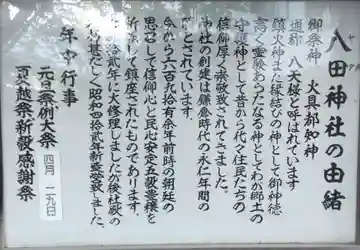 八田神社の由緒
御祭神 火具都知神
通称 八天様と呼ばれています
鎮火神また縁結びの神として御神徳
高く霊験あらたなる神としてわが郷土の
守護神として昔から代々住民たちの
信仰厚く崇敬致されてきました。
神社の創建は鎌倉時代の永仁年間の
とされています。
今から六百九拾有余年前時の朝廷の
思召で信仰心と民心安定五穀豊穣を
して鎮座されたものであります。
拾弐年に大修理しました が後社殿の
甚だしく昭和四拾弐年新築致しました。
年中行事
元旦祭 例大祭 四月 二九日
夏越祭 新穀感謝祭